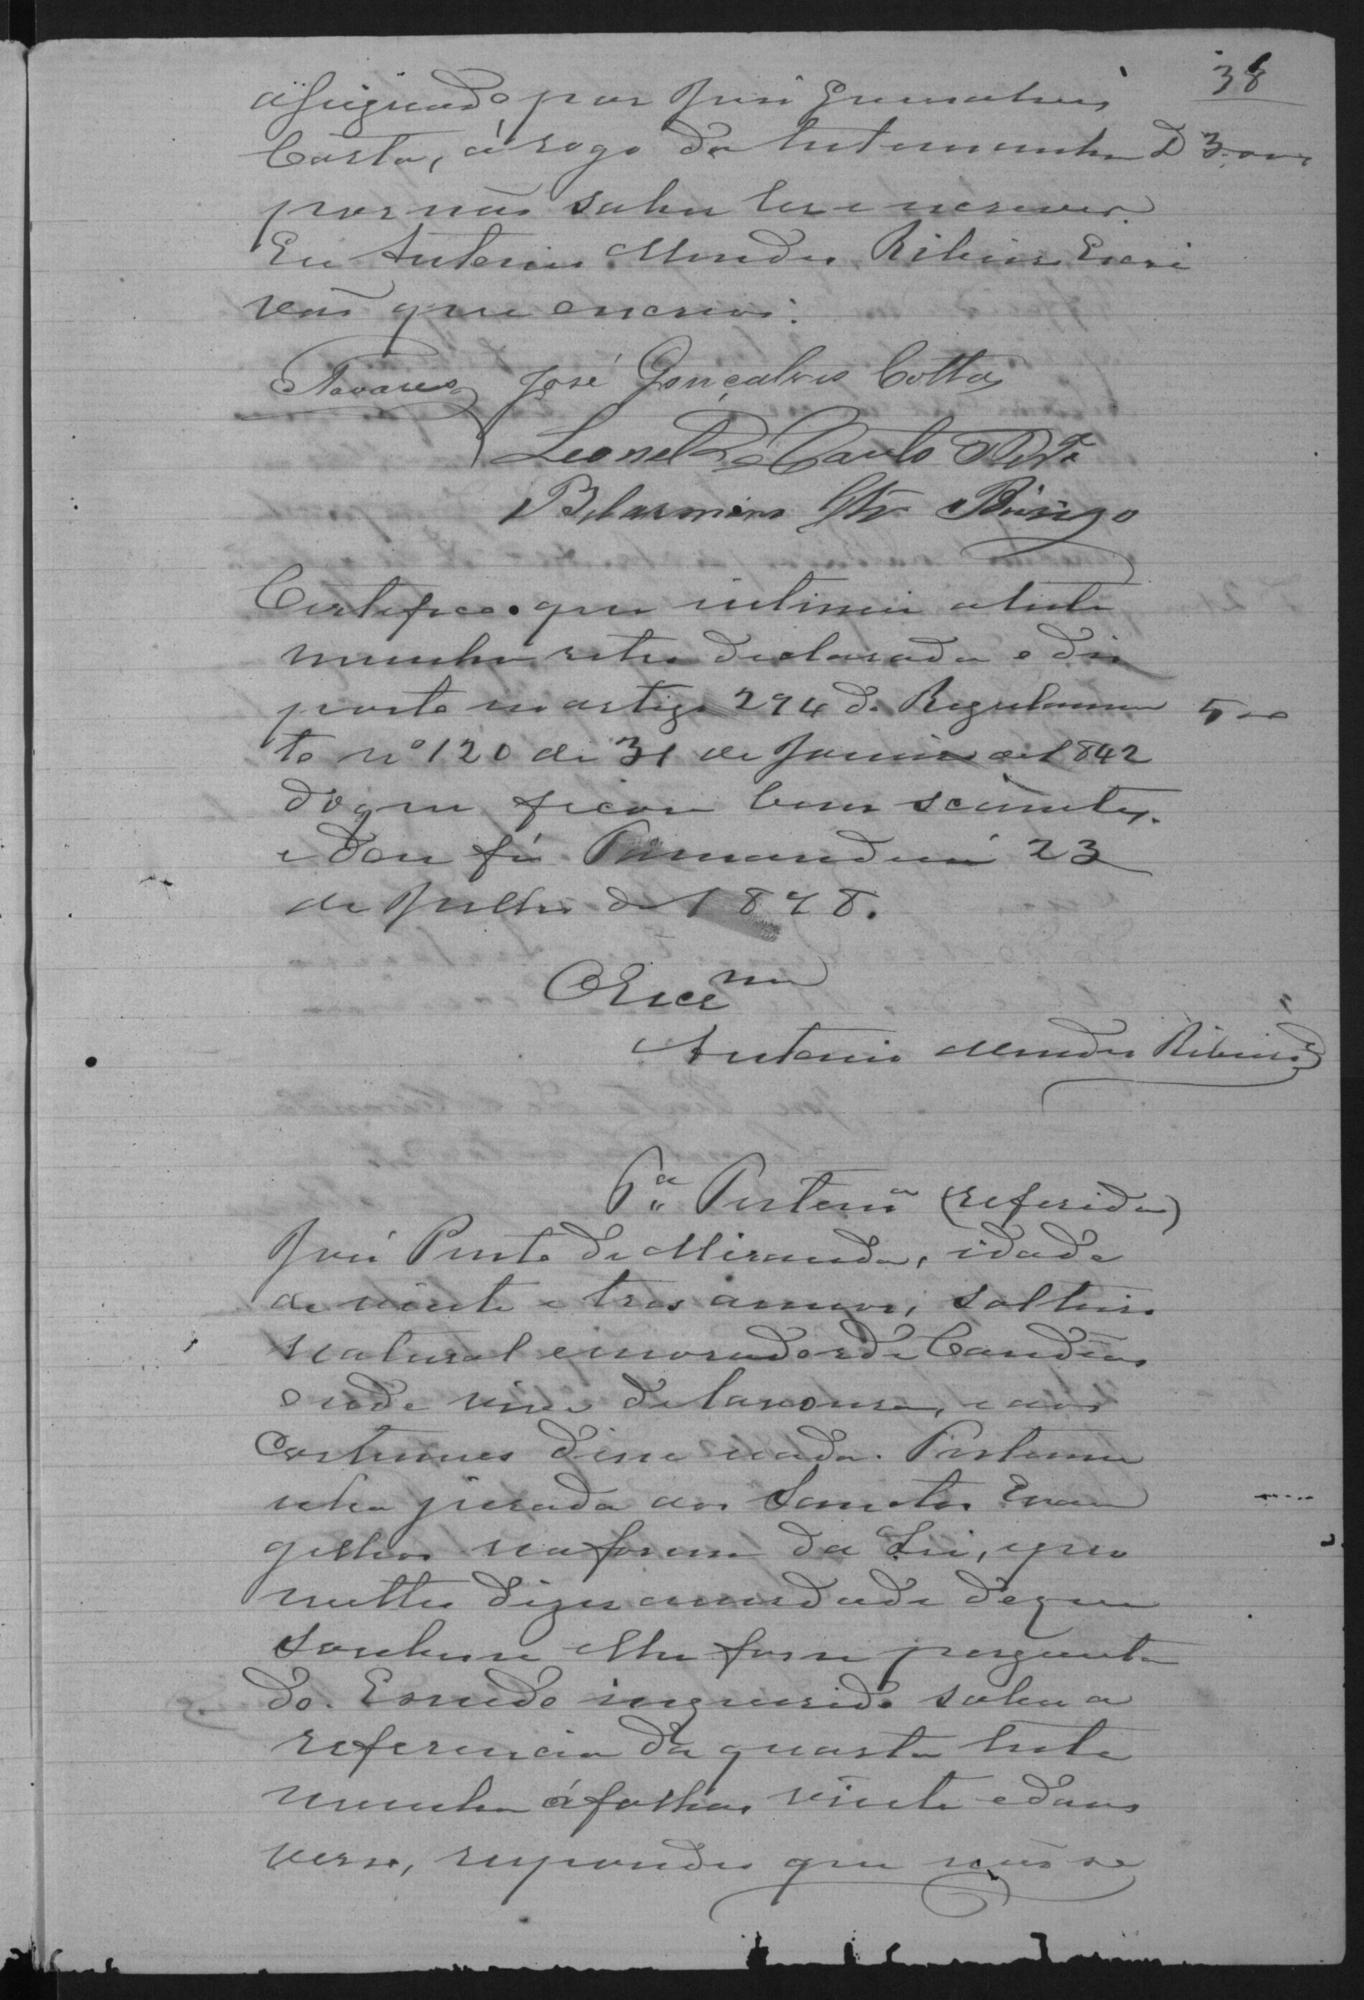 38
assignado por José Gonsalves
Costa, á rogo da testemunha D 3.000
por não saber ler e escrever.
Eu Antonio Mendes Ribeiro Escri
vão que escrevi.
Tavares José Gonçalves Cotta
Leonel de Paula
Belarmino
Certifico que intimei a teste
munha retro declarada o dis
posto no artigo 294 do Regulamen 500
to nº 120 de 31 de Janeiro de 1842
do que ficou bem sciente,
e dou fé. 23
de Julho de 1878.
O Escr.m
Antonio Mendes Ribeiro
Testem.a (referida)
José Pinto de Miranda, idade
de vinte e tres annos, solteiro
natural e morador de Candêas
onde vive de lavoura, e aos
costumes disse nada. Testemu
nha jurada aos Sanctos Evan
gelhos na forma da Lei, pro
metteu dizer a verdade do que
soubesse e lhe fosse pergunta
do. E sendo inquirido sobre a
referencia da quarta teste
munha á folhas vinte e duas
verso, respondeu que não se